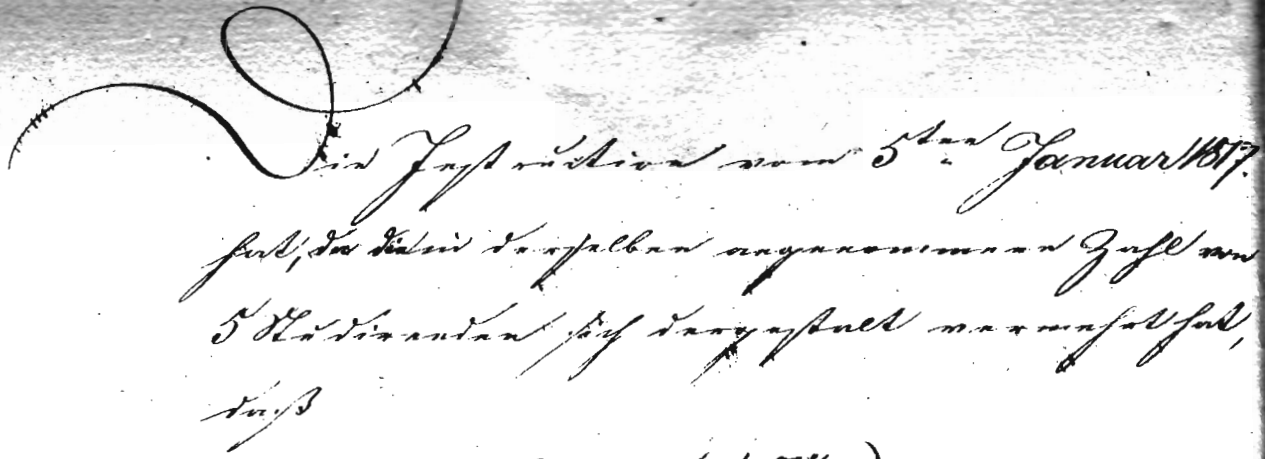 Die Instruction vom 5ten Januar 1817.
hat, da die in derselben angenommene Zahl von
5 Studirenden sich dergestalt vermehrt hat,
daß